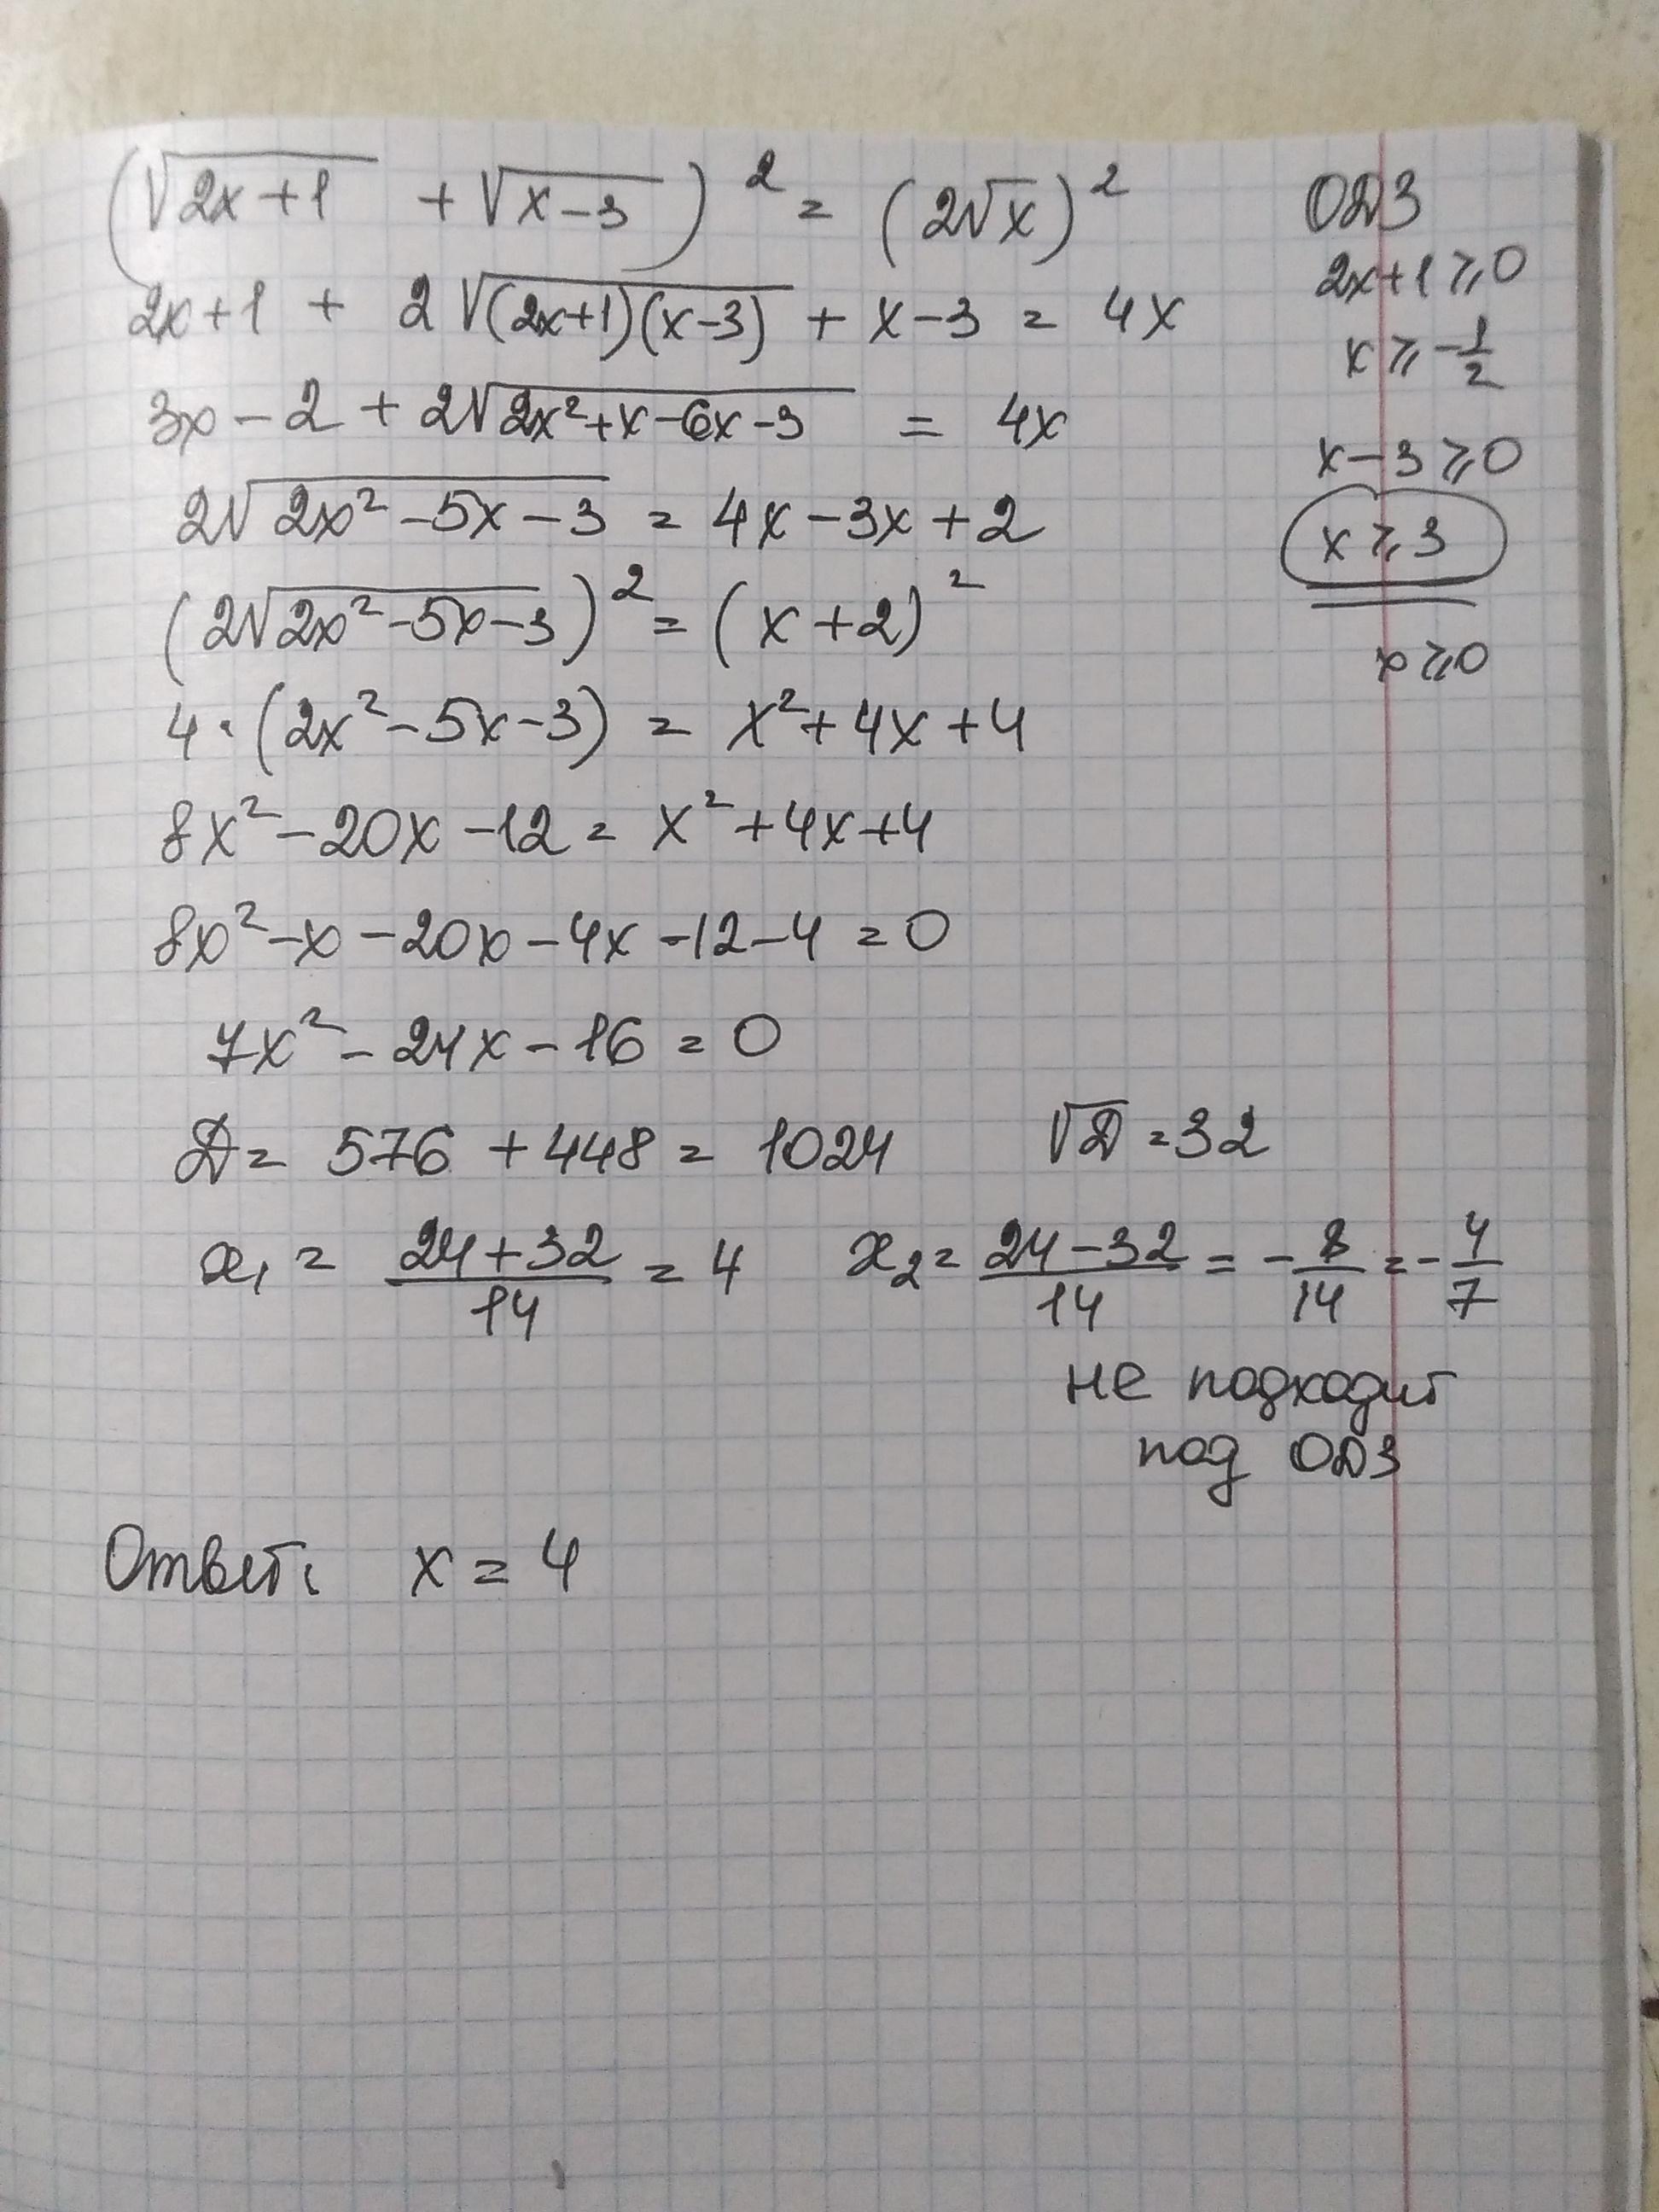 (√(2x+1) + √(x-3))² = (2√x)²
2x+1 + 2√((2x+1)(x-3)) + x-3 = 4x
3x-2 + 2√(2x²+x-6x-3) = 4x
2√(2x²-5x-3) = 4x-3x+2
(2√(2x²-5x-3))² = (x+2)²
4·(2x²-5x-3) = x²+4x+4
8x²-20x-12 = x²+4x+4
8x²-x-20x-4x-12-4=0
7x²-24x-16=0
D = 576+448 = 1024 √D = 32
x₁ = (24+32)/14 = 4 x₂ = (24-32)/14 = -8/14 = -4/7
не подходит
под ОДЗ
Ответ: x = 4
ОДЗ
2x+1⩾0
x⩾-1/2
x-3⩾0
x⩾3
x⩾0